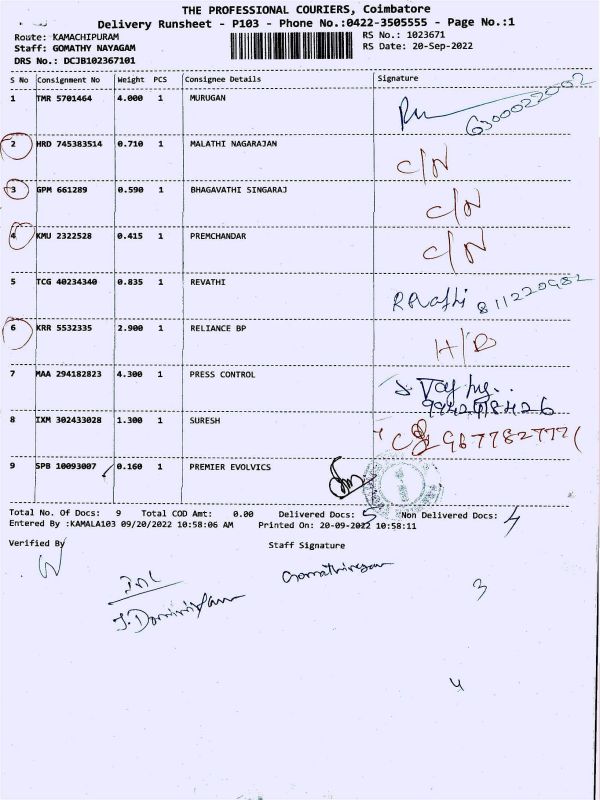 THE PROFESSIONAL COURIERS, Coimbatore
Delivery Runsheet - P103 - Phone No.:0422-3505555 - Page No.:1
Route: KAMACHIPURAM
Staff: GOMATHY NAYAGAM
DRS No.: DCJB102367101
RS No.: 1023671
RS Date: 20-Sep-2022
S No Consignment No Weight PCS Consignee Details Signature
1 TMR 5701464 4.000 1 MURUGAN 6300022002
2 HRD 745383514 0.710 1 MALATHI NAGARAJAN C/N
3 GPM 661289 0.590 1 BHAGAVATHI SINGARAJ C/N
4 KMU 2322528 0.415 1 PREMCHANDAR C/N
5 TCG 40234340 0.835 1 REVATHI Revathi
6 KRR 5532335 2.900 1 RELIANCE BP
7 MAA 294182823 4.300 1 PRESS CONTROL
8 IXM 302433028 1.300 1 SURESH
9 SPB 10093007 0.160 1 PREMIER EVOLVICS
Total No. Of Docs: 9 Total COD Amt: 0.00 Delivered Docs: 5 Non Delivered Docs: 4
Entered By :KAMALA103 09/20/2022 10:58:06 AM Printed On: 20-09-2022 10:58:11
Verified By Staff Signature
3
4